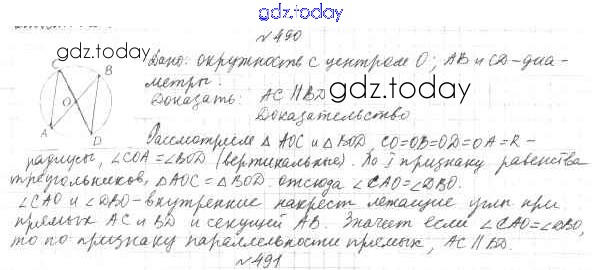 gdz.today
№ 490
gdz.today
Дано: окружность с центром O; AB и CD - диа-
метры.
Доказать: AC || BD
gdz.today
Доказательство
C
B
O
A
D
Рассмотрим △ AOC и △ BOD CO=OB=OD=OA=R -
радиусы, ∠COA=∠BOD (вертикальные). По I признаку равенства
треугольников, △AOC = △BOD. отсюда ∠CAO=∠DBO.
∠CAO и ∠DBO - внутренние накрест лежащие углы при
прямых AC и BD и секущей AB. Значит если ∠CAO=∠DBO,
то по признаку параллельности прямых, AC || BD.
№ 491